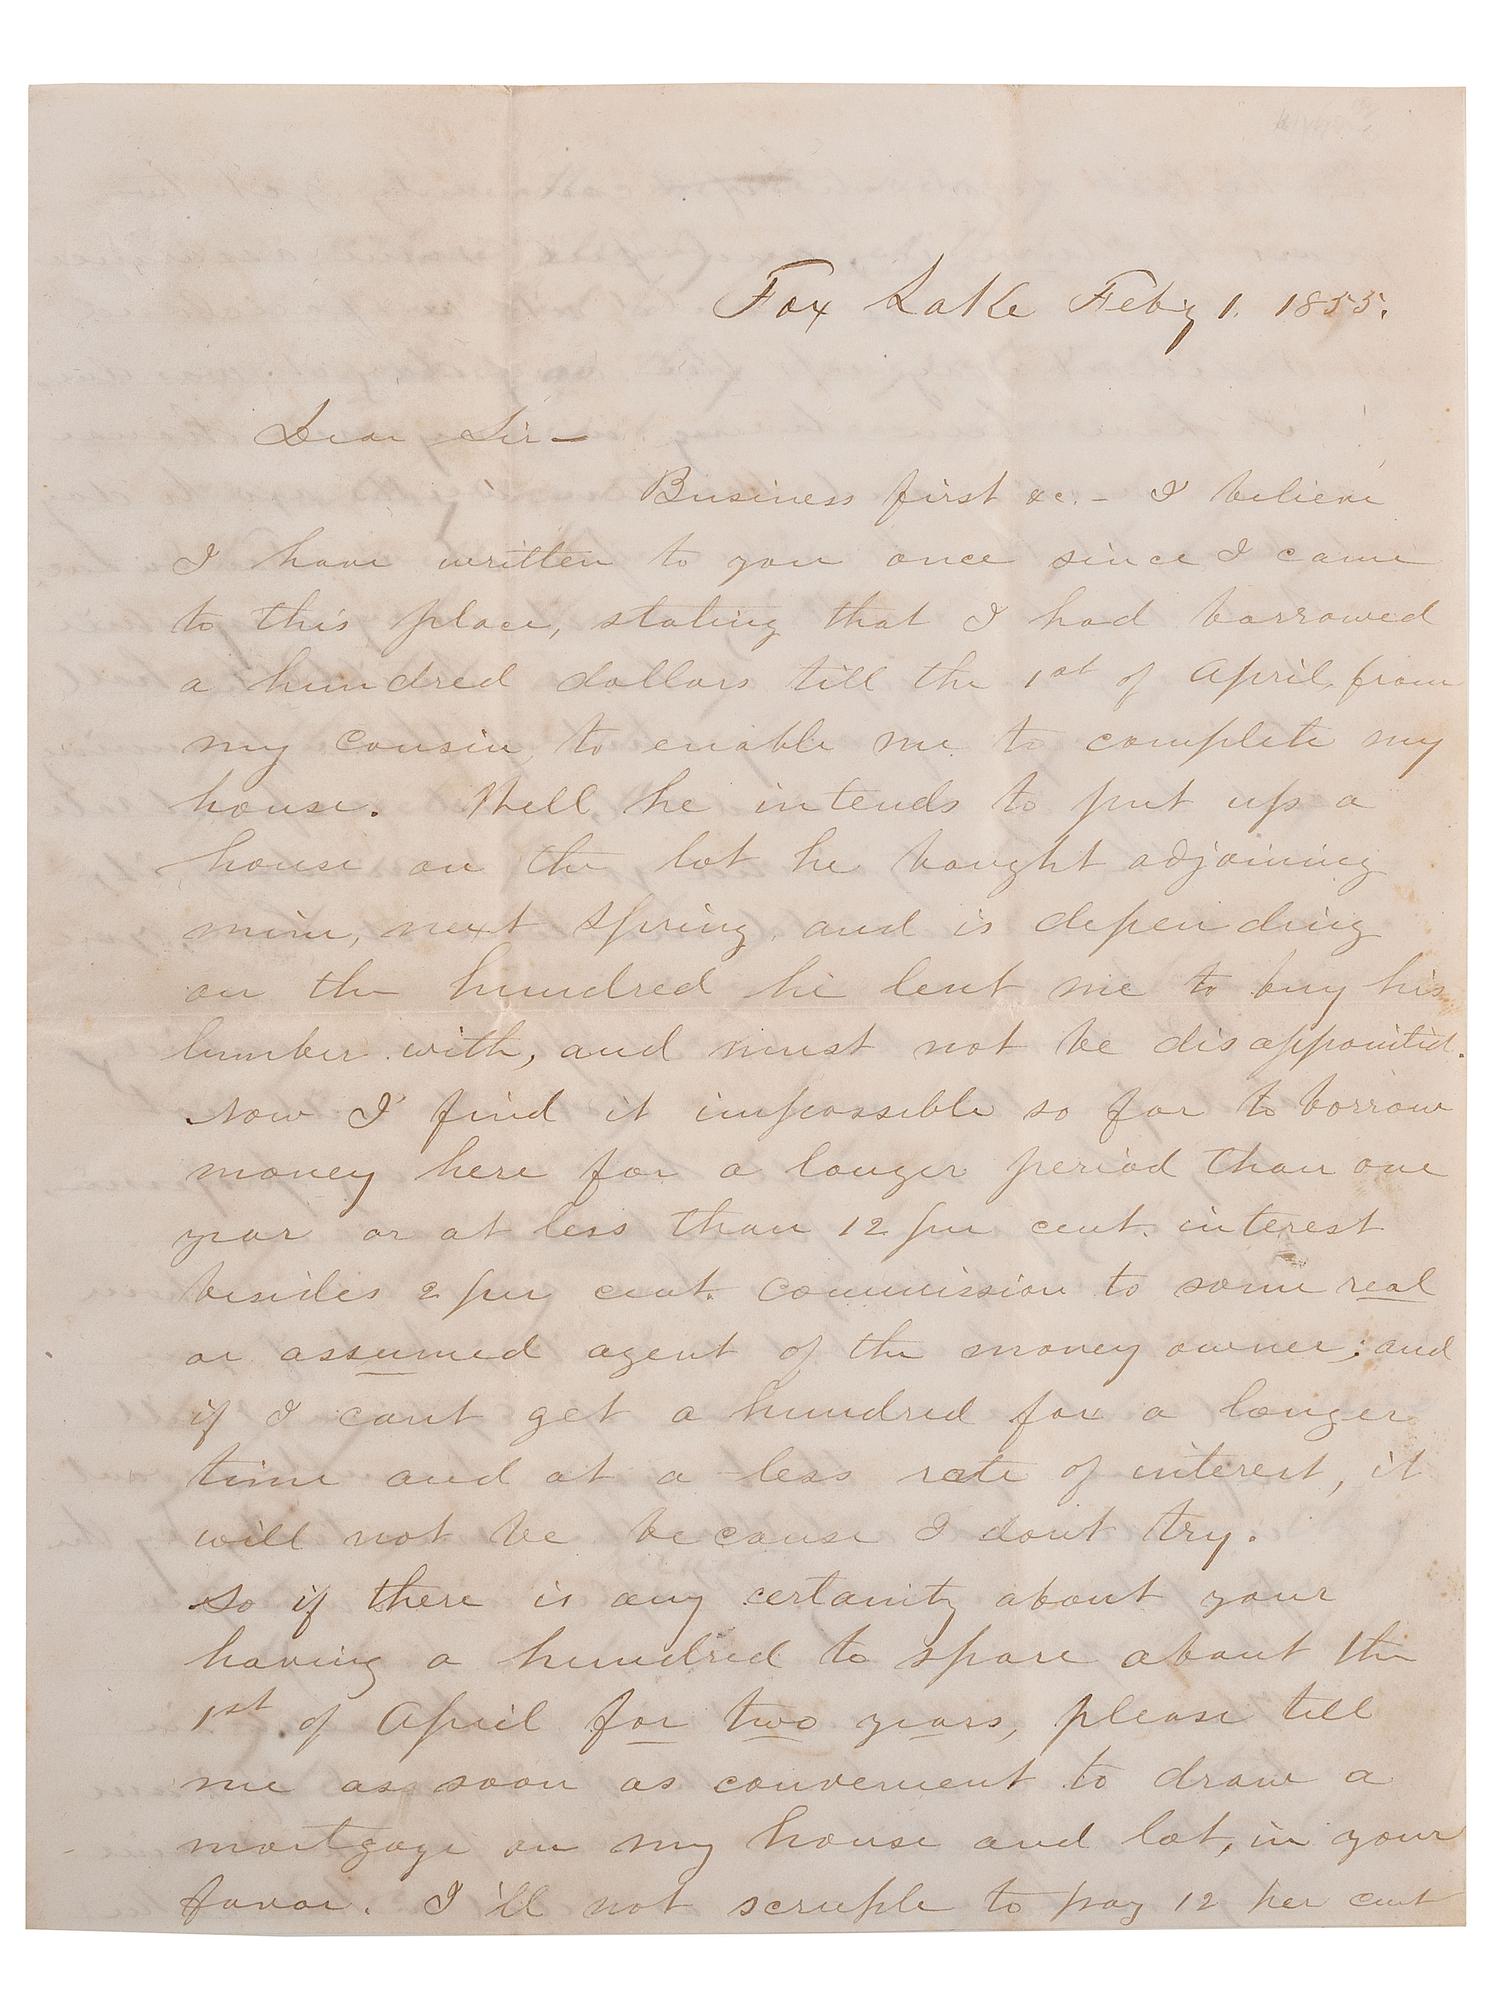 Fox Lake Feby 1. 1855.
Dear Sir—
Business first &c. – I believe
I have written to you once since I came
to this place, stating that I had borrowed
a hundred dollars till the 1st of April, from
my cousin, to enable me to complete my
house. Well, he intends to put up a
house on the lot he bought adjoining
mine, next Spring, and is depending
on the hundred he lent me to buy his
lumber with, and must not be disappointed.
Now I find it impossible so far to borrow
money here for a longer period than one
year or at less than 12 per cent. interest
besides 2 per cent. commission to some real
or assumed agent of the money owner; and
if I cant get a hundred for a longer
time and at a less rate of interest, it
will not be because I dont try.
So if there is any certainty about your
having a hundred to spare about the
1st of April for two years, please tell
me as soon as convenient to draw a
mortgage on my house and lot, in your
favor. I'll not scruple to pay 12 per cent